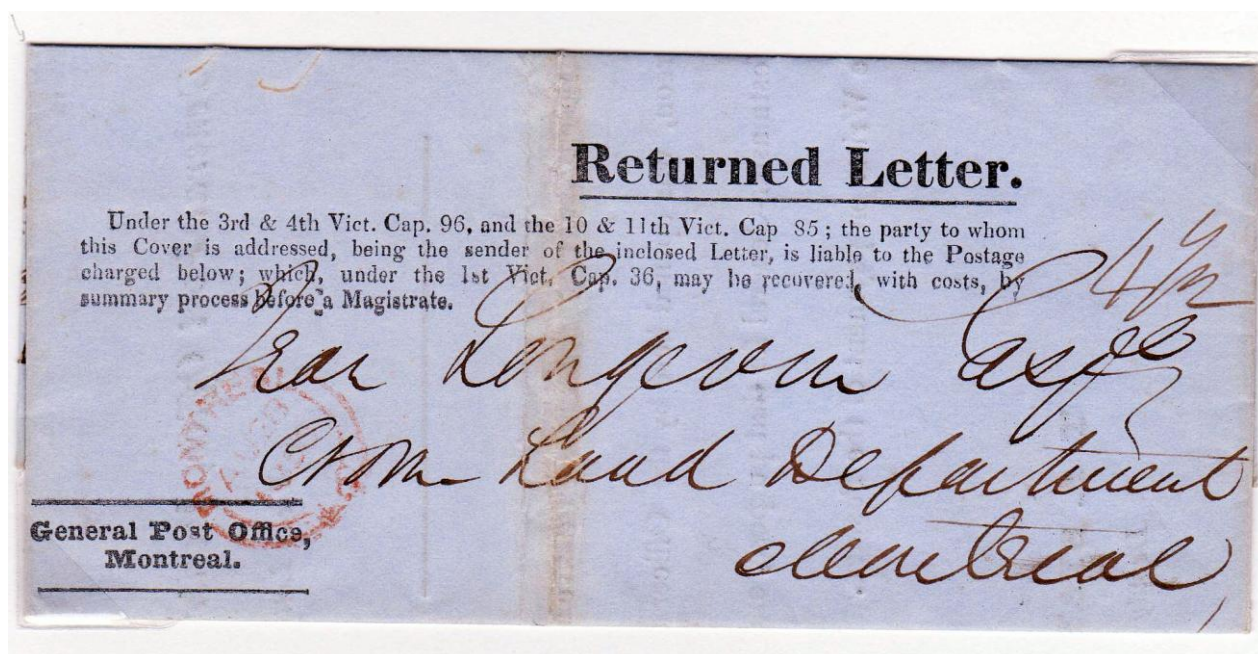 Returned Letter.
Under the 3rd & 4th Vict. Cap. 96, and the 10 & 11th Vict. Cap 85; the party to whom
this Cover is addressed, being the sender of the inclosed Letter, is liable to the Postage
charged below; which, under the 1st Vict. Cap. 36, may be recovered, with costs, by
summary process before a Magistrate.
4½
Esqre
Crown Land Department
Montreal
MONTREAL
General Post Office,
Montreal.